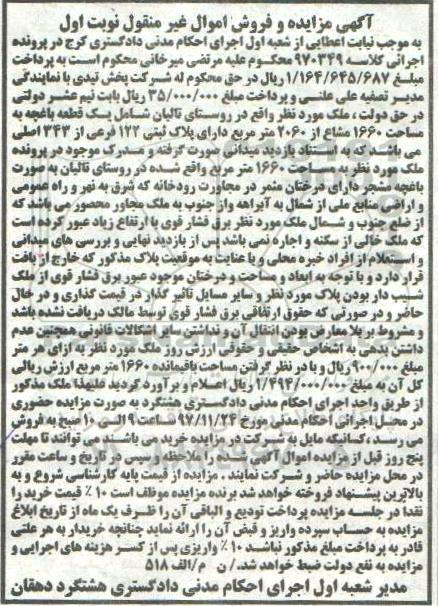 آگهی مزایده و فروش اموال غیر منقول نوبت اول
به موجب نیابت اعطایی از شعبه اول اجرای احکام مدنی دادگستری کرج در پرونده
اجرائی کلاسه ۹۷۰۳۴۹ محکوم علیه مرتضی میرخانی محکوم است به پرداخت
مبلغ ۱/۱۶۴/۶۴۵/۶۸۷ ریال در حق محکوم له شرکت پخش تیدی با نمایندگی
مدیر تصفیه علی علنی و پرداخت مبلغ ۳۵/۰۰۰/۰۰۰ ریال بابت نیم عشر دولتی
در حق دولت، ملک مورد نظر واقع در روستای تالیان شامل یک قطعه باغچه به
مساحت ۱۶۶۰ مشاع از ۲۰۶۰ متر مربع دارای پلاک ثبتی ۱۲۲ فرعی از ۳۴۳ اصلی
می باشد، که به استناد بازدید میدانی صورت گرفته و مدرک موجود در پرونده
ملک مورد نظر به مساحت ۱۶۶۰ متر مربع واقع شده در روستای تالیان به صورت
باغچه مشجر دارای درختان مثمر در مجاورت رودخانه که شرق به نهر و راه عمومی
و اراضی منابع ملی از شمال به آبراهه واز جنوب به ملک مجاور محصور می باشد که
از ضلع جنوب و شمال ملک مورد نظر برق فشار قوی با ارتفاع زیاد عبور کرده است
که ملک خالی از سکنه و اجاره نمی باشد پس از بازدید نهایی و بررسی های میدانی
و استعلام از افراد خبره محلی و با عنایت به موقعیت پلاک مذکور که خارج از بافت
قرار دارد و با توجه به ابعاد و مساحت و درختان موجود عبور برق فشار قوی از ملک
شیب دار بودن پلاک مورد نظر و سایر مسایل تاثیر گذار در قیمت گذاری و در حال
حاضر و در صورتی که حقوق ارتفاقی برق فشار قوی توسط مالک دریافت نشده باشد
و مشروط بر بلا معارض بودن انتقال آن و نداشتن سایر اشکالات قانونی همچنین عدم
داشتن بدهی به اشخاص حقیقی و حقوقی ارزش روز ملک مورد نظر به ازای هر متر
مبلغ ۹۰۰/۰۰۰ ریال و با در نظر گرفتن مساحت باقیمانده ۱۶۶۰ متر مربع ارزش ریالی
کل آن به مبلغ ۱/۴۹۴/۰۰۰/۰۰۰ ریال اعلام و برآورد گردید علیهذا ملک مذکور
از طریق واحد اجرای احکام مدنی دادگستری هشتگرد به صورت مزایده حضوری
در محل اجرائی احکام مدنی مورخ ۹۷/۱۱/۲۴ ساعت ۹ الی ۱۰ صبح به فروش
می رسد، کسانیکه مایل به شرکت در مزایده خرید می باشند می توانند تا مهلت
پنج روز قبل از مزایده اموال آگهی شده را ملاحظه و سپس در تاریخ و ساعت مقرر
در محل مزایده حاضر و شرکت نمایند، مزایده از قیمت پایه کارشناسی شروع و به
بالاترین پیشنهاد فروخته خواهد شد برنده مزایده موظف است ۱۰٪ قیمت خرید را
نقدا در جلسه مزایده پرداخت تودیع و الباقی آن را ظرف یک ماه از تاریخ ابلاغ
مزایده به حساب سپرده واریز و قبض آن را ارائه نماید چنانچه خریدار به هر علتی
قادر به پرداخت مبلغ مذکور نباشد ۱۰٪ واریزی پس از کسر هزینه های اجرایی و
مزایده به نفع دولت ضبط خواهد شد./ن م/الف ۵۱۸
مدیر شعبه اول اجرای احکام مدنی دادگستری هشتگرد دهقان